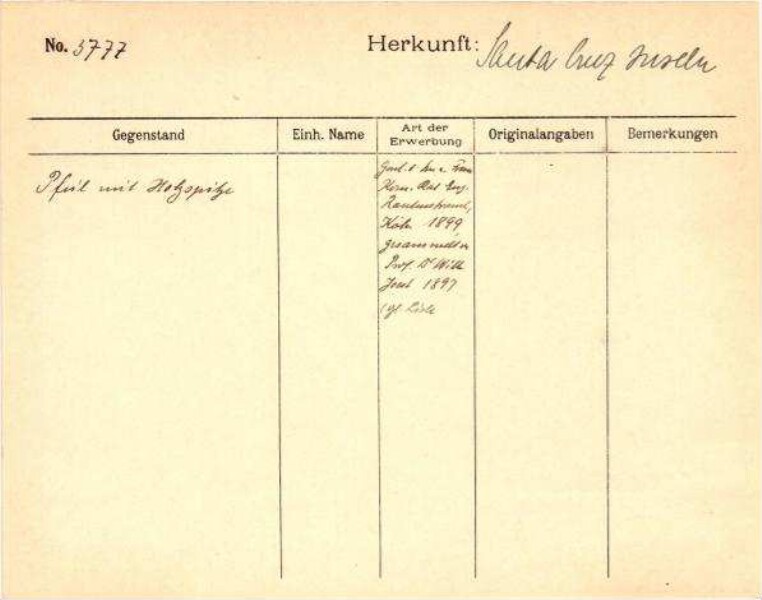 No. 3777 Herkunft: Santa Cruz Inseln
Gegenstand Einh. Name Art der Erwerbung Originalangaben Bemerkungen
Pfeil mit Holzspitze
Frau
Kom. Rat Eug.
Rautenstrauch,
Köln 1899
gesammelt v.
Prof. Dr Wilh.
Joest 1897